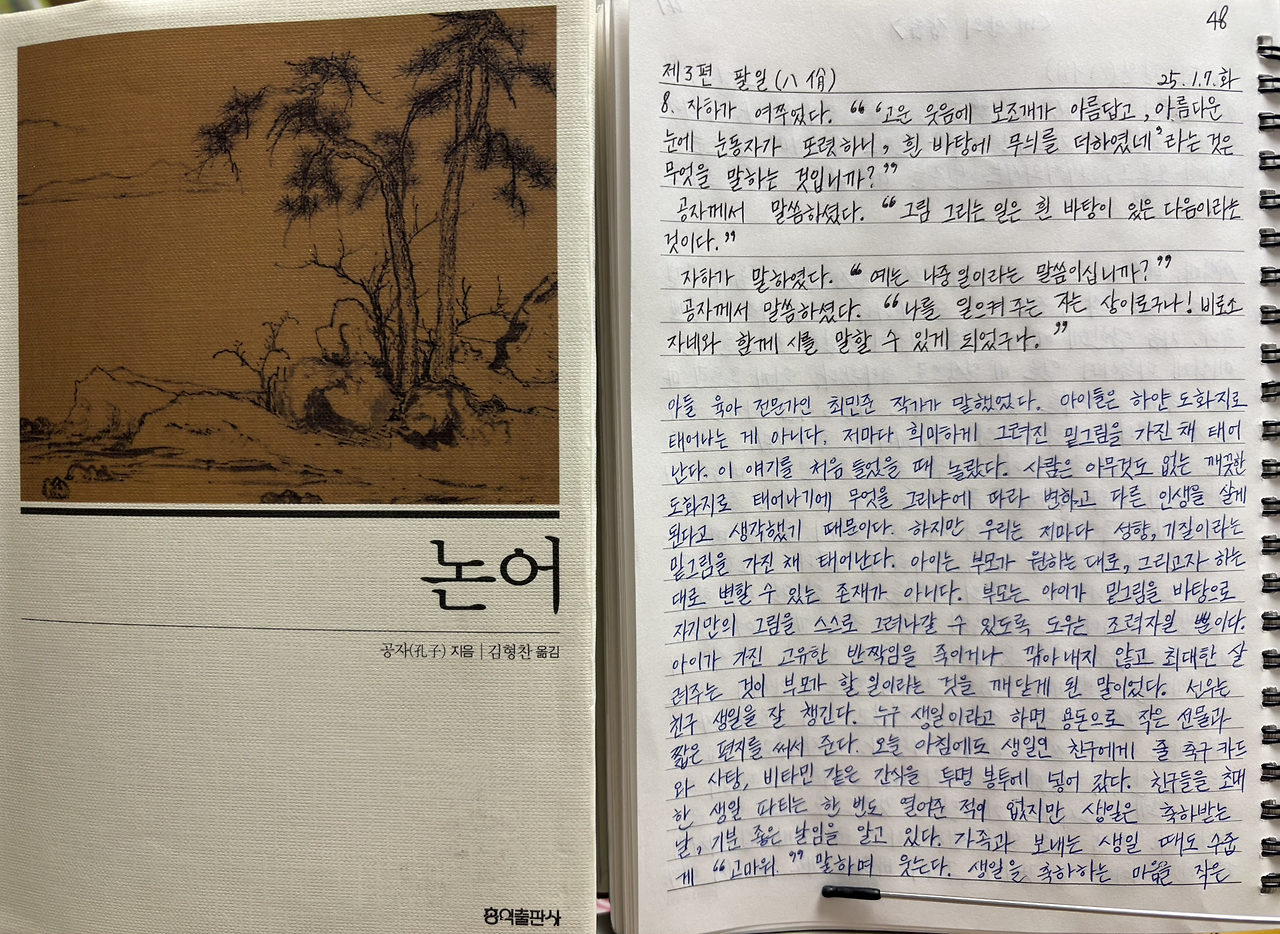 논어
공자(孔子) 지음 | 김형찬 옮김
홍익출판사
48
제3편 팔일(八佾) 25.1.7.화
8. 자하가 여쭈었다. “‘고운 웃음에 보조개가 아름답고, 아름다운
눈에 눈동자가 또렷하니, 흰 바탕에 무늬를 더하였네’라는 것은
무엇을 말하는 것입니까?”
공자께서 말씀하셨다. “그림 그리는 일은 흰 바탕이 있은 다음이라는
것이다.”
자하가 말하였다. “예는 나중 일이라는 말씀이십니까?”
공자께서 말씀하셨다. “나를 일으켜 주는 자는 상이로구나! 비로소
자네와 함께 시를 말할 수 있게 되었구나.”
아들 육아 전문가인 최민준 작가가 말했었다. 아이들은 하얀 도화지로
태어나는 게 아니다. 저마다 희미하게 그려진 밑그림을 가진 채 태어
난다. 이 얘기를 처음 들었을 때 놀랐다. 사람은 아무것도 없는 깨끗한
도화지로 태어나기에 무엇을 그리냐에 따라 변하고 다른 인생을 살게
된다고 생각했기 때문이다. 하지만 우리는 저마다 성향, 기질이라는
밑그림을 가진 채 태어난다. 아이는 부모가 원하는 대로, 그리고자 하는
대로 변할 수 있는 존재가 아니다. 부모는 아이가 밑그림을 바탕으로
자기만의 그림을 스스로 그려나갈 수 있도록 도우는 조력자일 뿐이다.
아이가 가진 고유한 반짝임을 죽이거나 깎아내지 않고 최대한 살
려주는 것이 부모가 할 일이라는 것을 깨닫게 된 말이었다. 선우는
친구 생일을 잘 챙긴다. 누구 생일이라고 하면 용돈으로 작은 선물과
짧은 편지를 써서 준다. 오늘 아침에도 생일인 친구에게 줄 축구 카드
와 사탕, 비타민 같은 간식을 투명 봉투에 넣어 갔다. 친구들을 초대
한 생일 파티는 한 번도 열어준 적이 없지만 생일은 축하받는
날, 기분 좋은 날임을 알고 있다. 가족과 보내는 생일 때도 수줍
게 “고마워.” 말하며 웃는다. 생일을 축하하는 마음을 작은